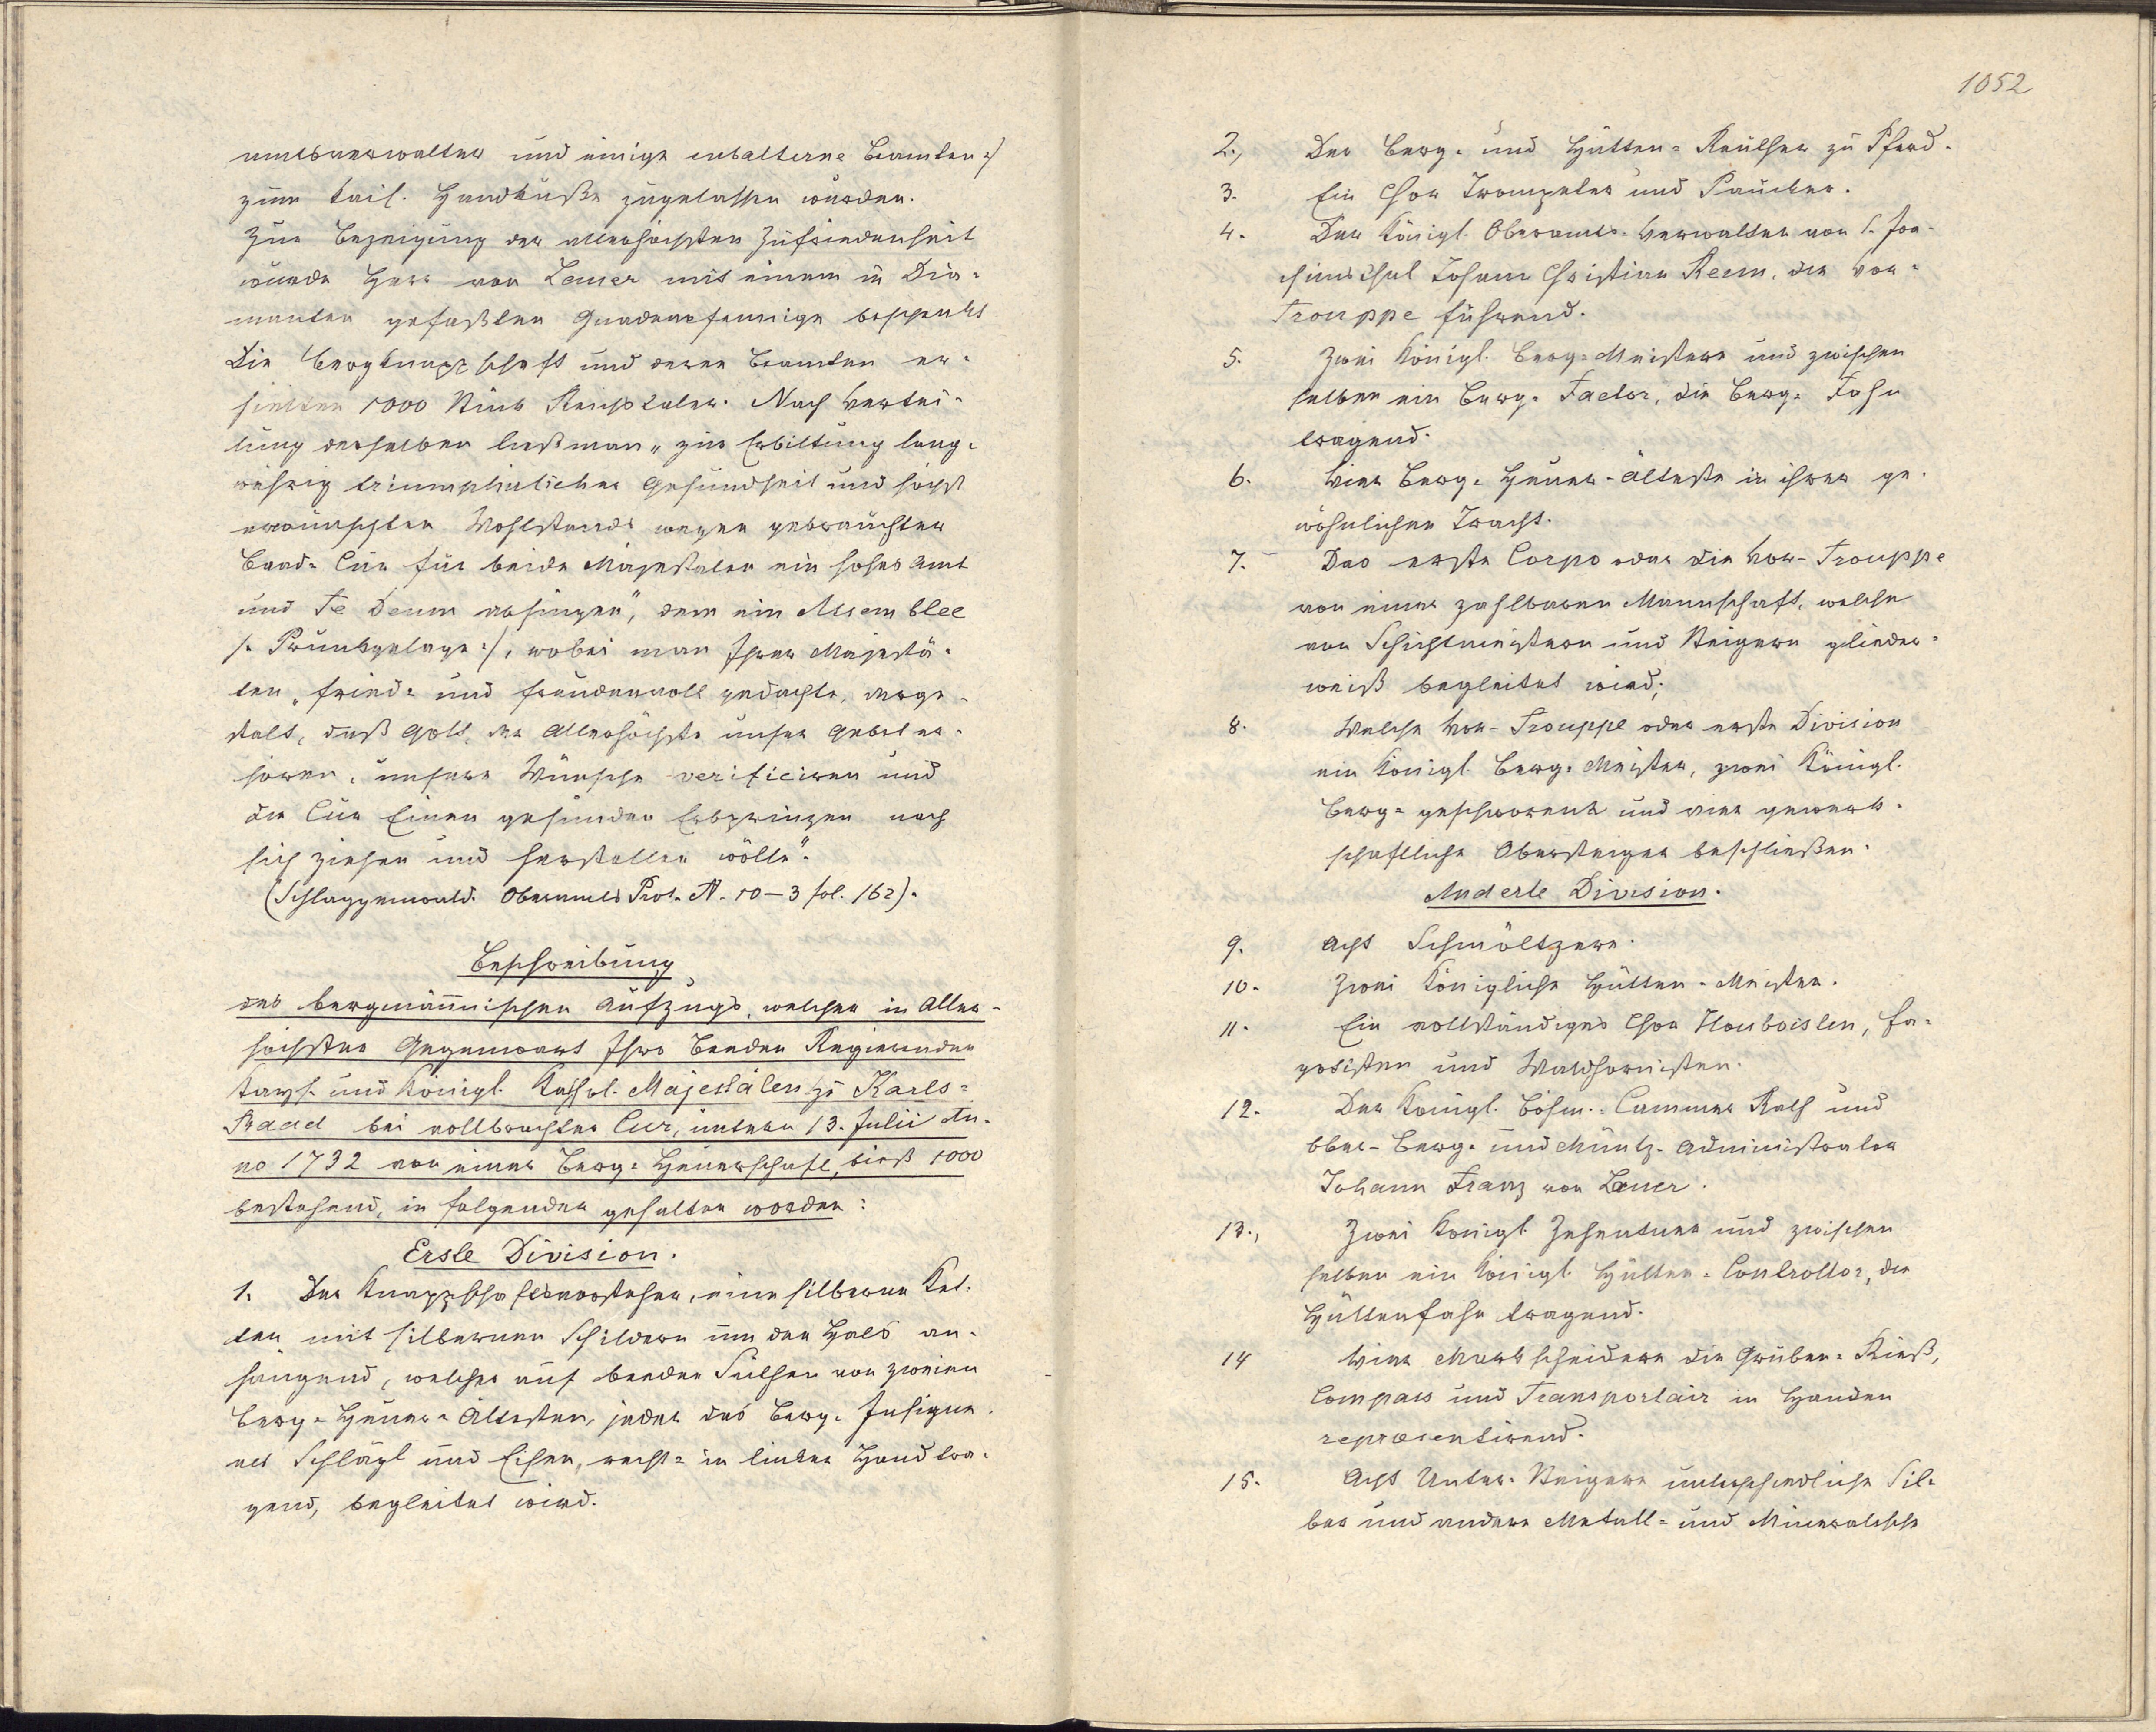 amtsverwalter und einige subalterne Beamten :/
zum kais. Handkuße zugelassen wurden.
Zur Bezeigung der allerhöchsten Zufriedenheit
wurde Herr von Lauer mit einem in Dia-
manten gefaßten Gnadenpfennige beschenkt
Die Bergknappschaft und deren Beamten er-
hielten 1000 Stück Reichstaler. Nach Vertei-
lung derselben ließ man „zur Erbittung lang-
wehrig triumphirlicher Gesundheit und höchst
erwünschten Wohlstands wegen gebrauchter
Baad-Cur für beide Majestäten ein hohes Amt
und Te Deum absingen", dann ein Assemblee
/: Prunkgelage :/, wobei man Ihrer Majestä-
ten „fried- und freudenvoll gedachte, derge-
stalt, daß Gott, der Allerhöchste unser Gebet er-
hören, unsere Wünsche verificiren und
die Cur Einen gesunden Erbprinzen nach
sich ziehen und herstellen wölle".
(Schlaggenwald. Oberamts Prot. A. 10–3 fol. 162).
Beschreibung
des bergmännischen Aufzugs, welcher in Aller-
höchster Gegenwart Ihro Beeden Regierenden
Kays. und Königl. Kathol. Majestäten zu Karls-
Baad bei vollbrachter Cur, untern 13. Julii An-
no 1732 von einer Berg-Heuerschaft, bieß 1000
bestehend, in folgender gehalten worden:
Erste Division.
1. Der Knappschaftsvorsteher, eine silberne Ket-
ten mit silbernen Schildern um den Hals an-
hängend, welcher auf beeden Seithen von zweien
Berg-Heuer-Ältesten, jeder das Berg-Insigne.
als Schlägl und Eisen, recht- in linker Hand tra-
gend, begleitet wird.
1052
2., Der Berg- und Hütten-Reuther zu Pferd.
3. Ein Chor Trompeter und Paucker.
4. Der Königl. Oberamts-Verwalter von S. Joa-
chimsthal Johann Christian Reem, die Vor-
Trouppe führend.
5. Zwei Königl. Berg-Meistere und zwischen
selben ein Berg-Factor, die Berg-Fahn
tragend.
6. Vier Berg-Heuer-Älteste in ihrer ge-
wöhnlichen Tracht.
7. Das erste Corpo oder die Vor-Trouppe
von einer zahlbaren Mannschaft, welche
von Schichtmeistern und Steigern glieder-
weiß begleitet wird;
8. Welche Vor-Trouppe oder erste Division
ein Königl. Berg-Meister, zwei Königl.
Berg-geschworene und vier gewerk-
schaftliche Obersteiger beschließen.
Anderte Division.
9. Acht Schmöltzere.
10. Zwei Königliche Hütten-Meister.
11. Ein vollständiges Chor Houboisten, Fa-
gotisten und Waldhornisten.
12. Der Königl. Böhm.-Cammer Rath und
Ober-Berg- und Müntz-Administrator
Johann Franz von Lauer.
13., Zwei Königl. Zehentner und zwischen
selben ein Königl. Hütten-Controllor, die
Hüttenfahn tragend.
14 Vier Markscheidere die Gruben-Rieß,
Compass und Transportair in Handen
repræsentirend.
15. Acht Unter-Steigere unterschiedliche Sil-
ber und andere Metall- und Mineralische